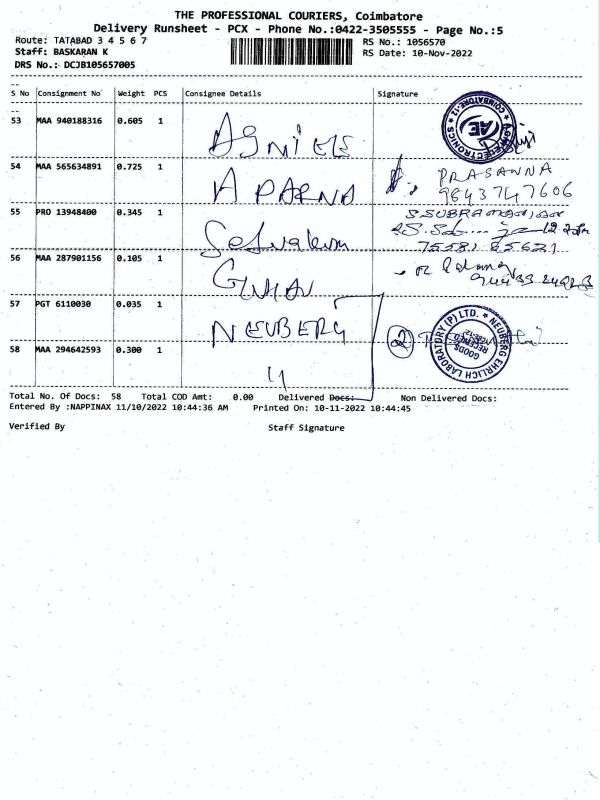 THE PROFESSIONAL COURIERS, Coimbatore
Delivery Runsheet - PCX - Phone No.:0422-3505555 - Page No.:5
Route: TATABAD 3 4 5 6 7
RS No.: 1056570
Staff: BASKARAN K
RS Date: 10-Nov-2022
DRS No.: DCJB105657005
S No Consignment No Weight PCS Consignee Details Signature
53 MAA 940188316 0.605 1
54 MAA 565634891 0.725 1 APARNA PRASANNA
9843747606
55 PRO 13948400 0.345 1
75581 85621
56 MAA 287901156 0.105 1
57 PGT 6110030 0.035 1 NEUBERG
NEUBERG EHRLICH LABORATORY (P) LTD.
GOODS
RECEIVED
58 MAA 294642593 0.300 1 11
Total No. Of Docs: 58 Total COD Amt: 0.00 Delivered Docs: Non Delivered Docs:
Entered By :NAPPINAX 11/10/2022 10:44:36 AM Printed On: 10-11-2022 10:44:45
Verified By Staff Signature